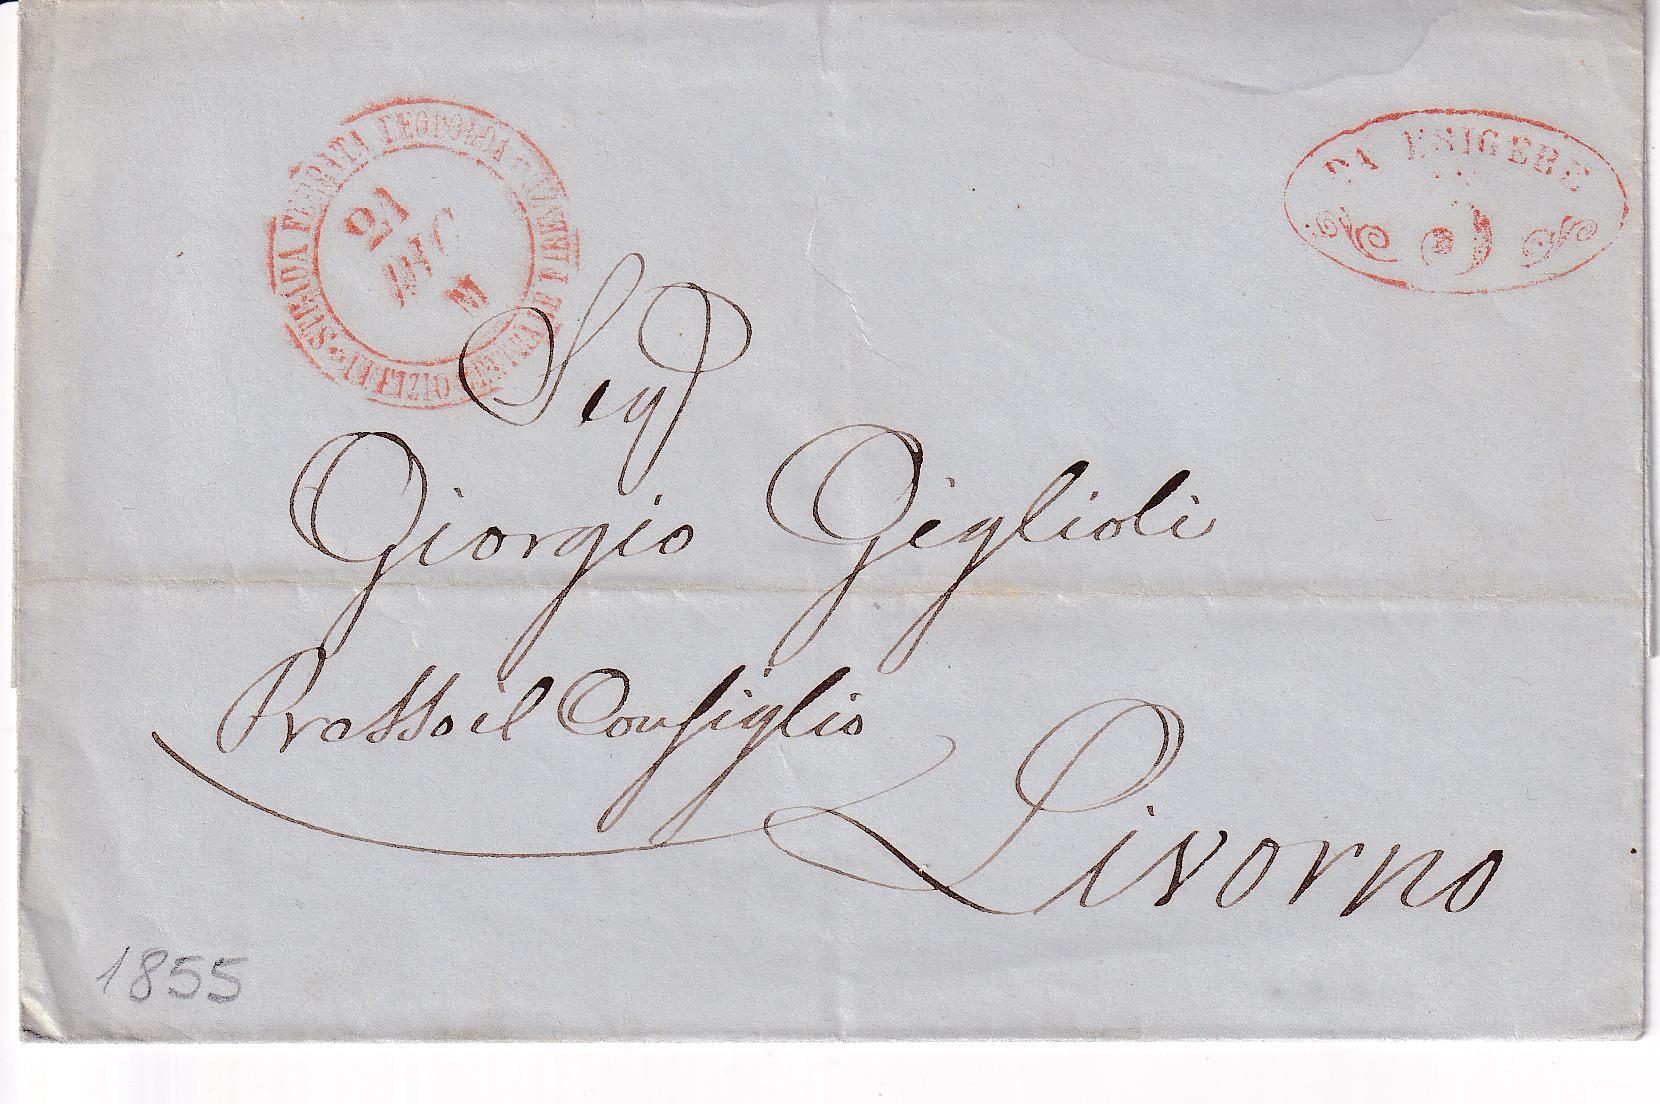 STRADA FERRATA LEOPOLDA
21
DIC
DA ESIGERE
Sigr
Giorgio Giglioli
Presso il Consiglio
Livorno
1855